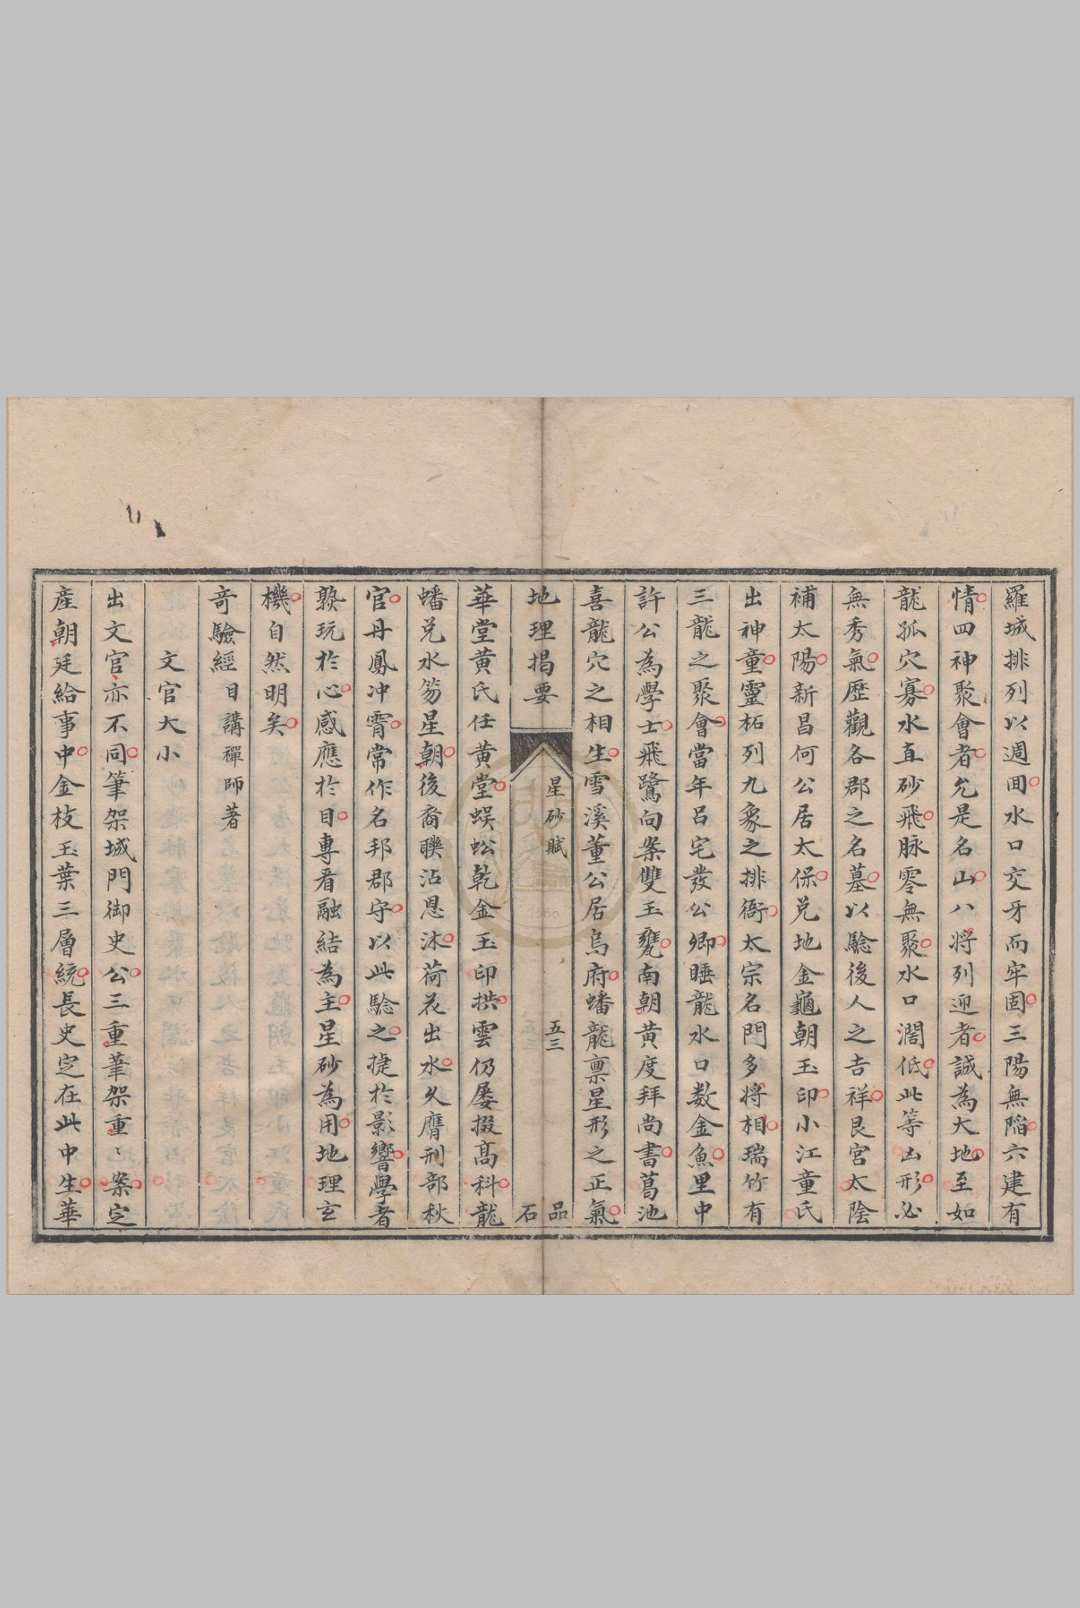 羅城排列以週囬水口交牙而牢固三陽無陷六建有
情四神聚會者允是名山八將列迎者誠為大地至如
龍孤穴寡水直砂飛脉零無聚水口濶低此等凶形必
無秀氣歷觀各郡之名墓以驗後人之吉祥艮宮太陰
補太陽新昌何公居太保兑地金龜朝玉印小江童氏
出神童靈柘列九象之排衙太宗名門多將相瑞竹有
三龍之聚會當年呂宅發公卿睡龍水口数金魚里中
許公為學士飛鷺向案雙玉甕南朝黄度拜尚書葛池
喜龍穴之相生雪溪董公居烏府蟠龍禀星形之正氣
地理揭要
星砂賦
五三
品石
華堂黄氏任黄堂蜈蚣乾金玉印拱雲仍屡掇髙科龍
蟠兑水笏星朝後裔聨沾恩沐荷花出水久膺刑部秋
官丹鳳冲霄常作名邦郡守以此驗之捷於影響學者
熟玩於心感應於目專看融結為主星砂為用地理玄
機自然明矣
奇驗經 目講禪師著
文官大小
出文官亦不同筆架城門御史公三重筆架重〻案定
產朝廷給事中金枝玉葉三層統長史定在此中生華